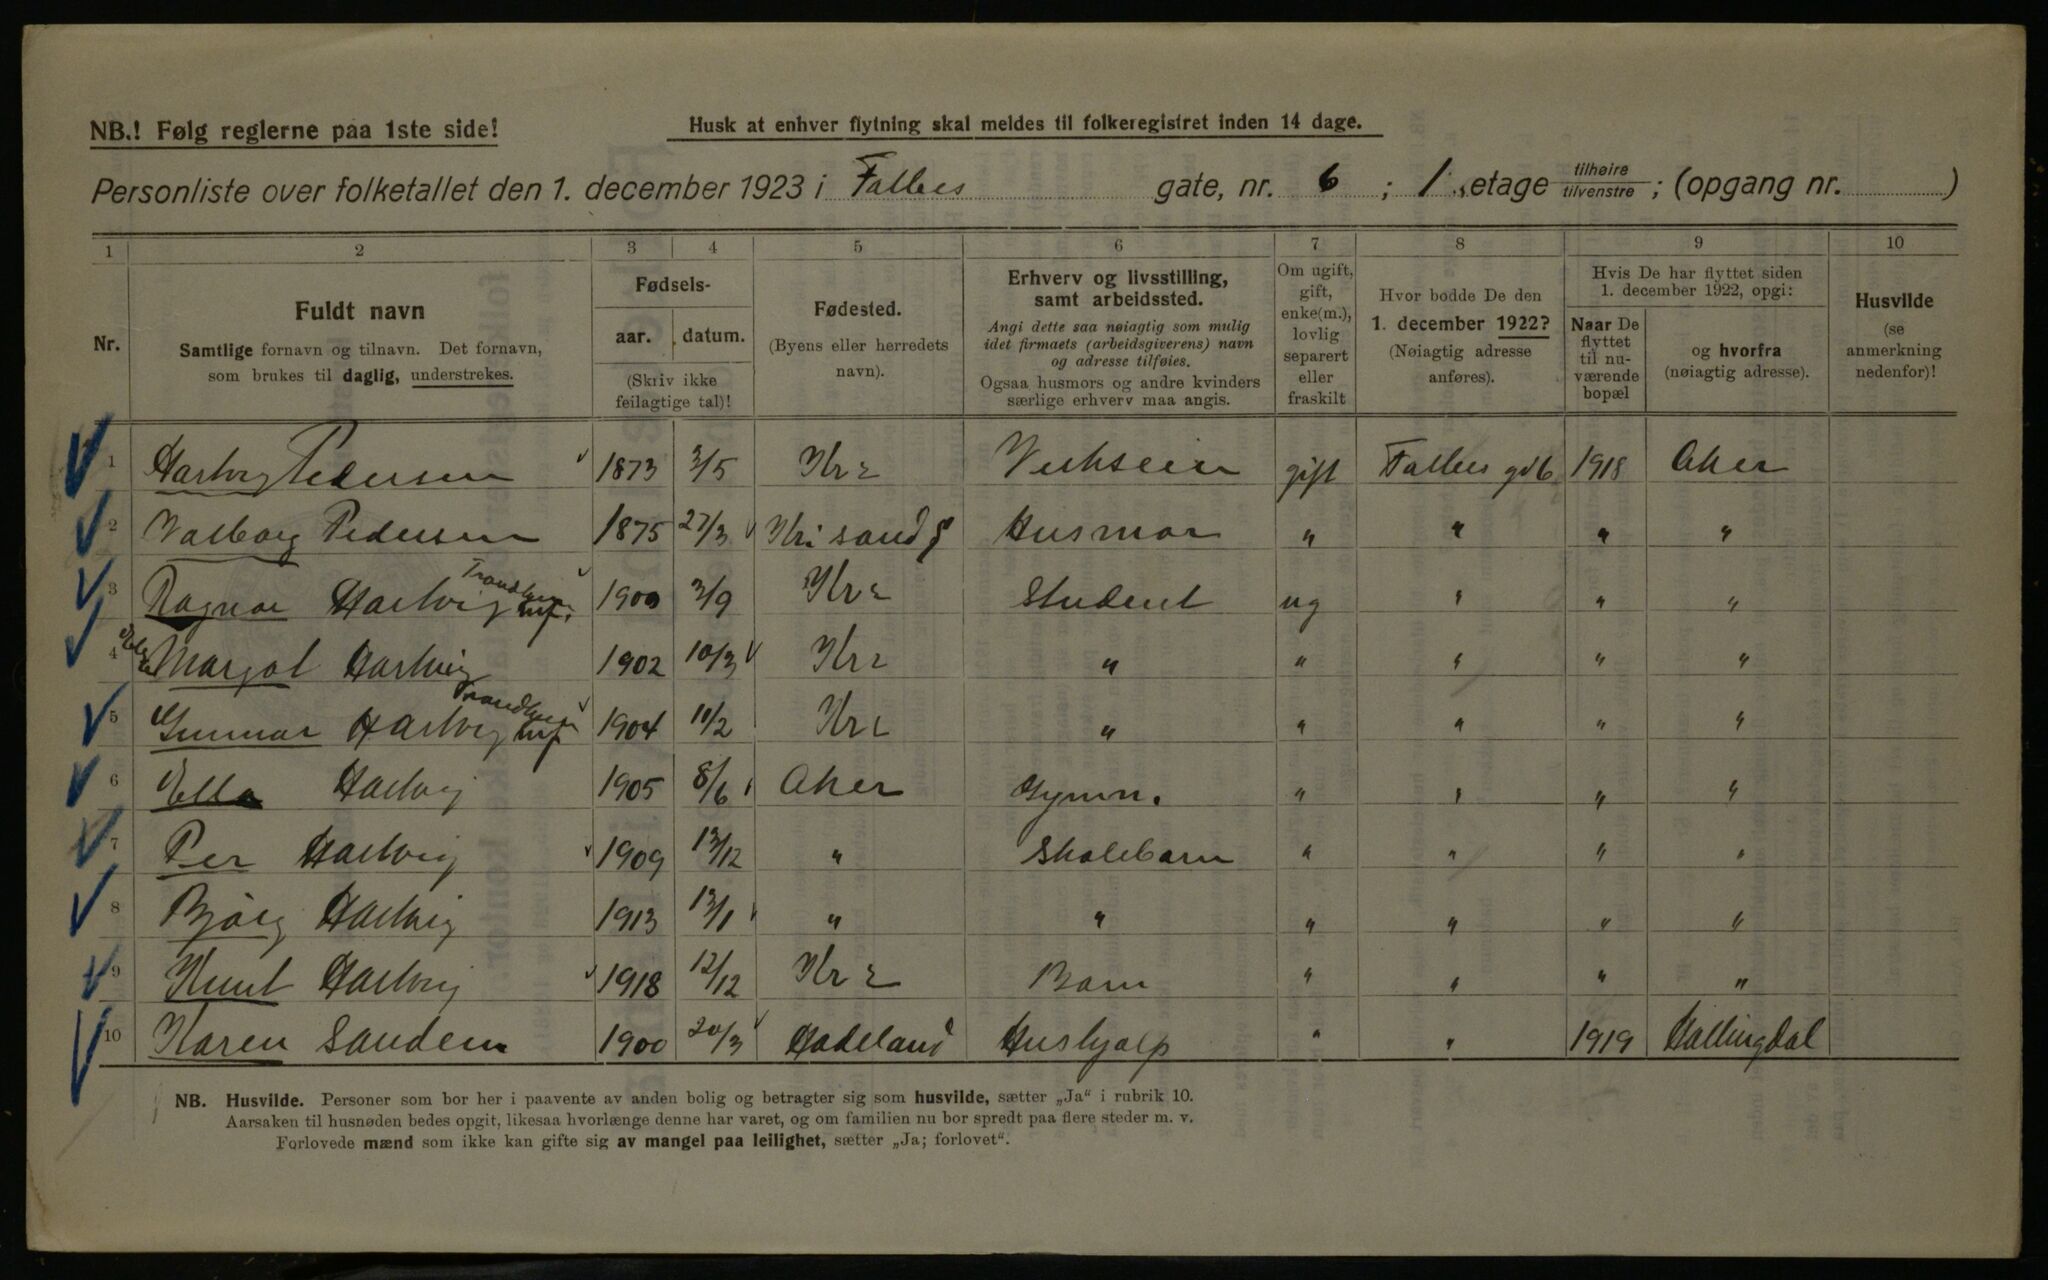 NB.! Følg reglerne paa 1ste side!
Husk at enhver flytning skal meldes til folkeregistret inden 14 dage.
Personliste over folketallet den 1. december 1923 i Falbes gate, nr. 6 ; 1. etage tilhøire / tilvenstre ; (opgang nr. )
1 2 3 4 5 6 7 8 9 10
Nr.
Fuldt navn
Samtlige fornavn og tilnavn. Det fornavn,
som brukes til daglig, understrekes.
Fødsels-
aar. datum.
(Skriv ikke
feilagtige tal)!
Fødested.
(Byens eller herredets
navn).
Erhverv og livsstilling,
samt arbeidssted.
Angi dette saa nøiagtig som mulig
idet firmaets (arbeidsgiverens) navn
og adresse tilføies.
Ogsaa husmors og andre kvinders
særlige erhverv maa angis.
Om ugift,
gift,
enke(m.),
lovlig
separert
eller
fraskilt
Hvor bodde De den
1. december 1922?
(Nøiagtig adresse
anføres).
Hvis De har flyttet siden
1. december 1922, opgi:
Naar De
flyttet
til nu-
værende
bopæl
og hvorfra
(nøiagtig adresse).
Husvilde
(se
anmerkning
nedenfor)!
1 Hartvig Pedersen 1873 3/5 Kra Verkseier gift Falbes gd 6 1918 Aker
2 Valborg Pedersen 1875 27/3 Kri sand S Husmor " " " "
Trondhjem
3 Ragnar Hartvig mf. 1900 3/9 Kra Student ug " " "
4 Margot Hartvig 1902 10/3 Kra " " " " "
Trondhjem
5 Gunnar Hartvig mf 1904 10/2 Kra " " " " "
6 Ella Hartvig 1905 8/6 Aker Gymn. " " " "
7 Per Hartvig 1909 13/12 " Skolebarn " " " "
8 Bjørg Hartvig 1913 13/1 " " " " " "
9 Knut Hartvig 1918 12/12 Kra Barn " " " "
10 Karen Sanden 1900 20/3 Hadeland Hushjælp " " 1919 Hallingdal
NB. Husvilde. Personer som bor her i paavente av anden bolig og betragter sig som husvilde, sætter „Ja" i rubrik 10.
Aarsaken til husnøden bedes opgit, likesaa hvorlænge denne har varet, og om familien nu bor spredt paa flere steder m. v.
Forlovede mænd som ikke kan gifte sig av mangel paa leilighet, sætter „Ja; forlovet".